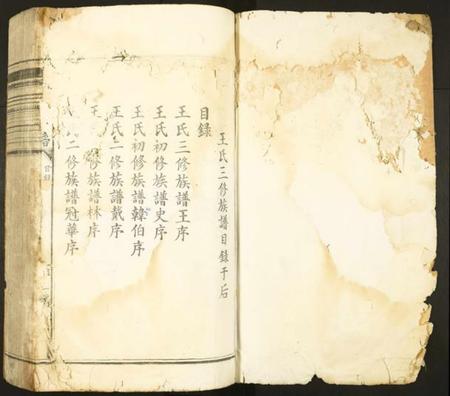 王氏三修族譜目錄于后
目錄
王氏三修族譜王序
王氏初修族譜史序
王氏初修族譜韓伯序
王氏二修族譜戴序
王 族譜林序
二修族譜冠華序
目錄